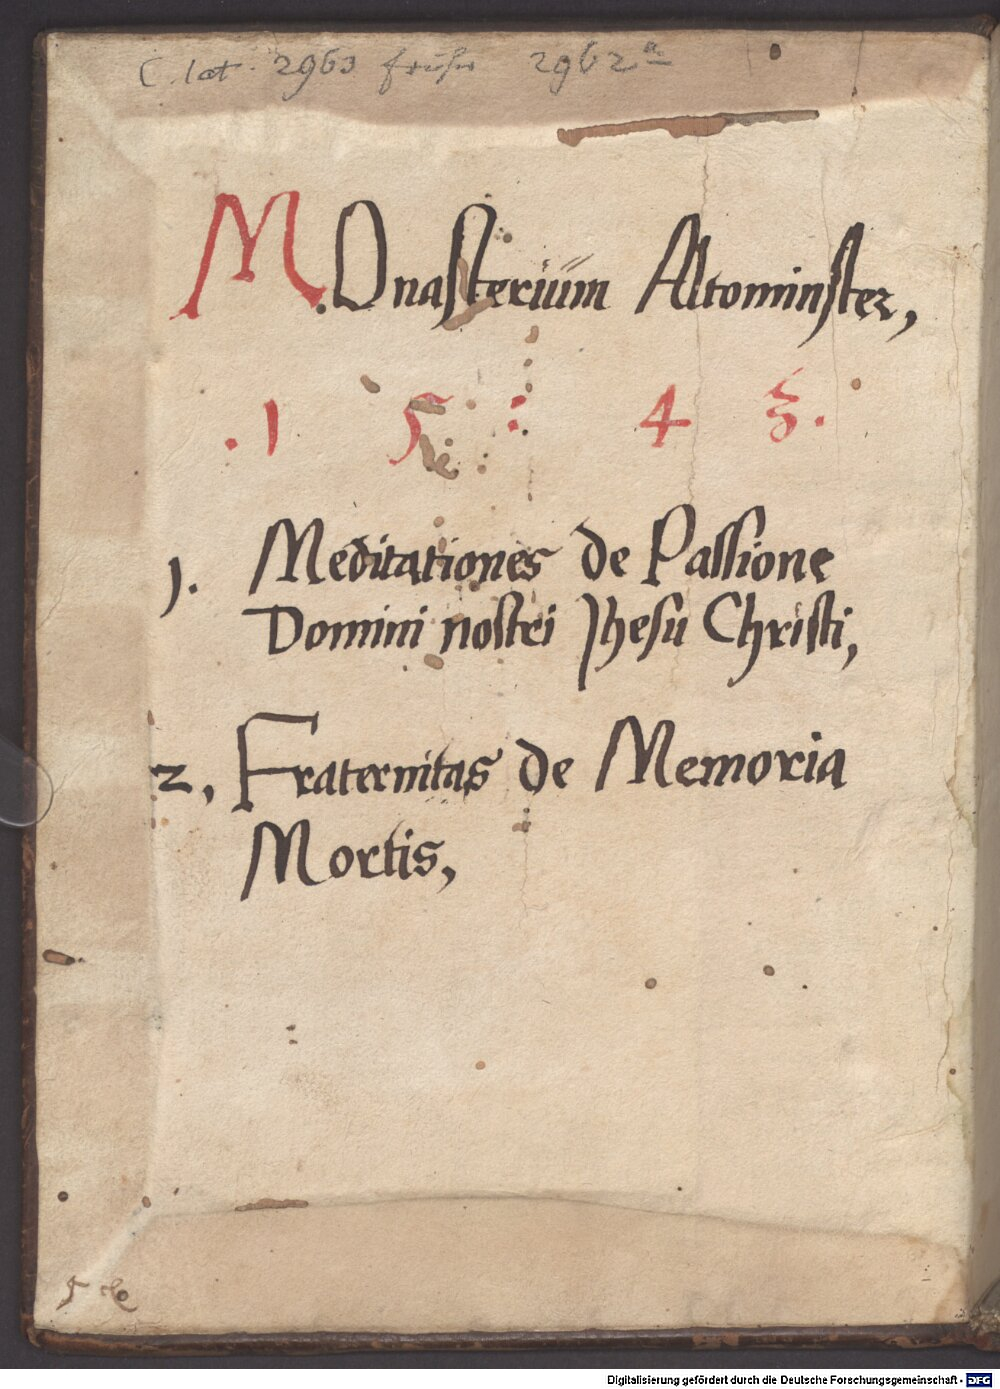 C. lat. 2963 früher 2962a
MOnasterium Altominster,
. 1 5 : 4 3 .
1. Meditationes de Passione
Domini nostri Jhesu Christi,
2, Fraternitas de Memoria
Mortis,
Digitalisierung gefördert durch die Deutsche Forschungsgemeinschaft - DFG